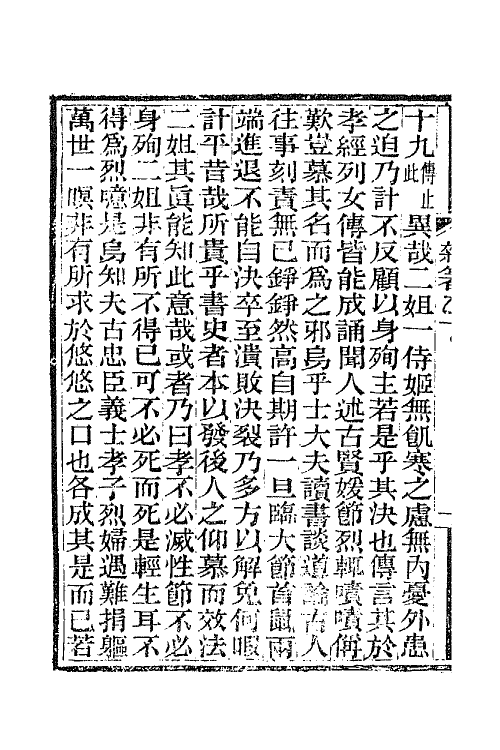 十九傳止此異哉二姐一侍姬無飢寒之慮無內憂外患
之迫乃計不反顧以身殉主若是乎其決也傳言其於
孝經列女傳皆能成誦聞人述古賢媛節烈輒嘖嘖偁
歎豈慕其名而爲之邪烏乎士大夫讀書談道論古人
往事刻責無已錚錚然高自期許一旦臨大節首鼠兩
端進退不能自決卒至潰敗決裂乃多方以解免何暇
計平昔哉所貴乎書史者本以發後人之仰慕而效法
二姐其眞能知此意哉或者乃曰孝不必滅性節不必
身殉二姐非有所不得已可不必死而死是輕生耳不
得爲烈噫是烏知夫古忠臣義士孝子烈婦遇難捐軀
萬世一暝非有所求於悠悠之口也各成其是而已若